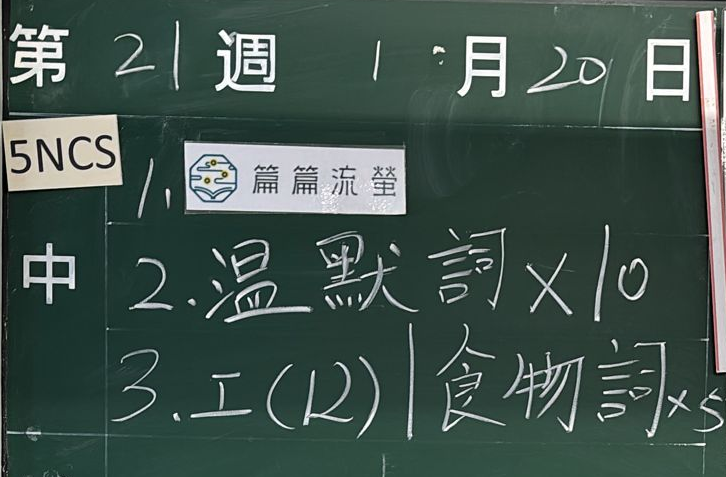 第 21 週 1 月 20 日
5NCS
1. 篇篇流螢
中
2. 温默詞×10
3. 工(12)|食物詞×5